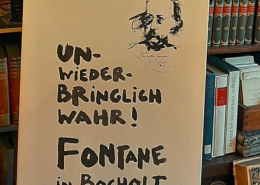 UN-
WIEDER-
BRINGLICH
WAHR!
FONTANE
in BOCHOLT